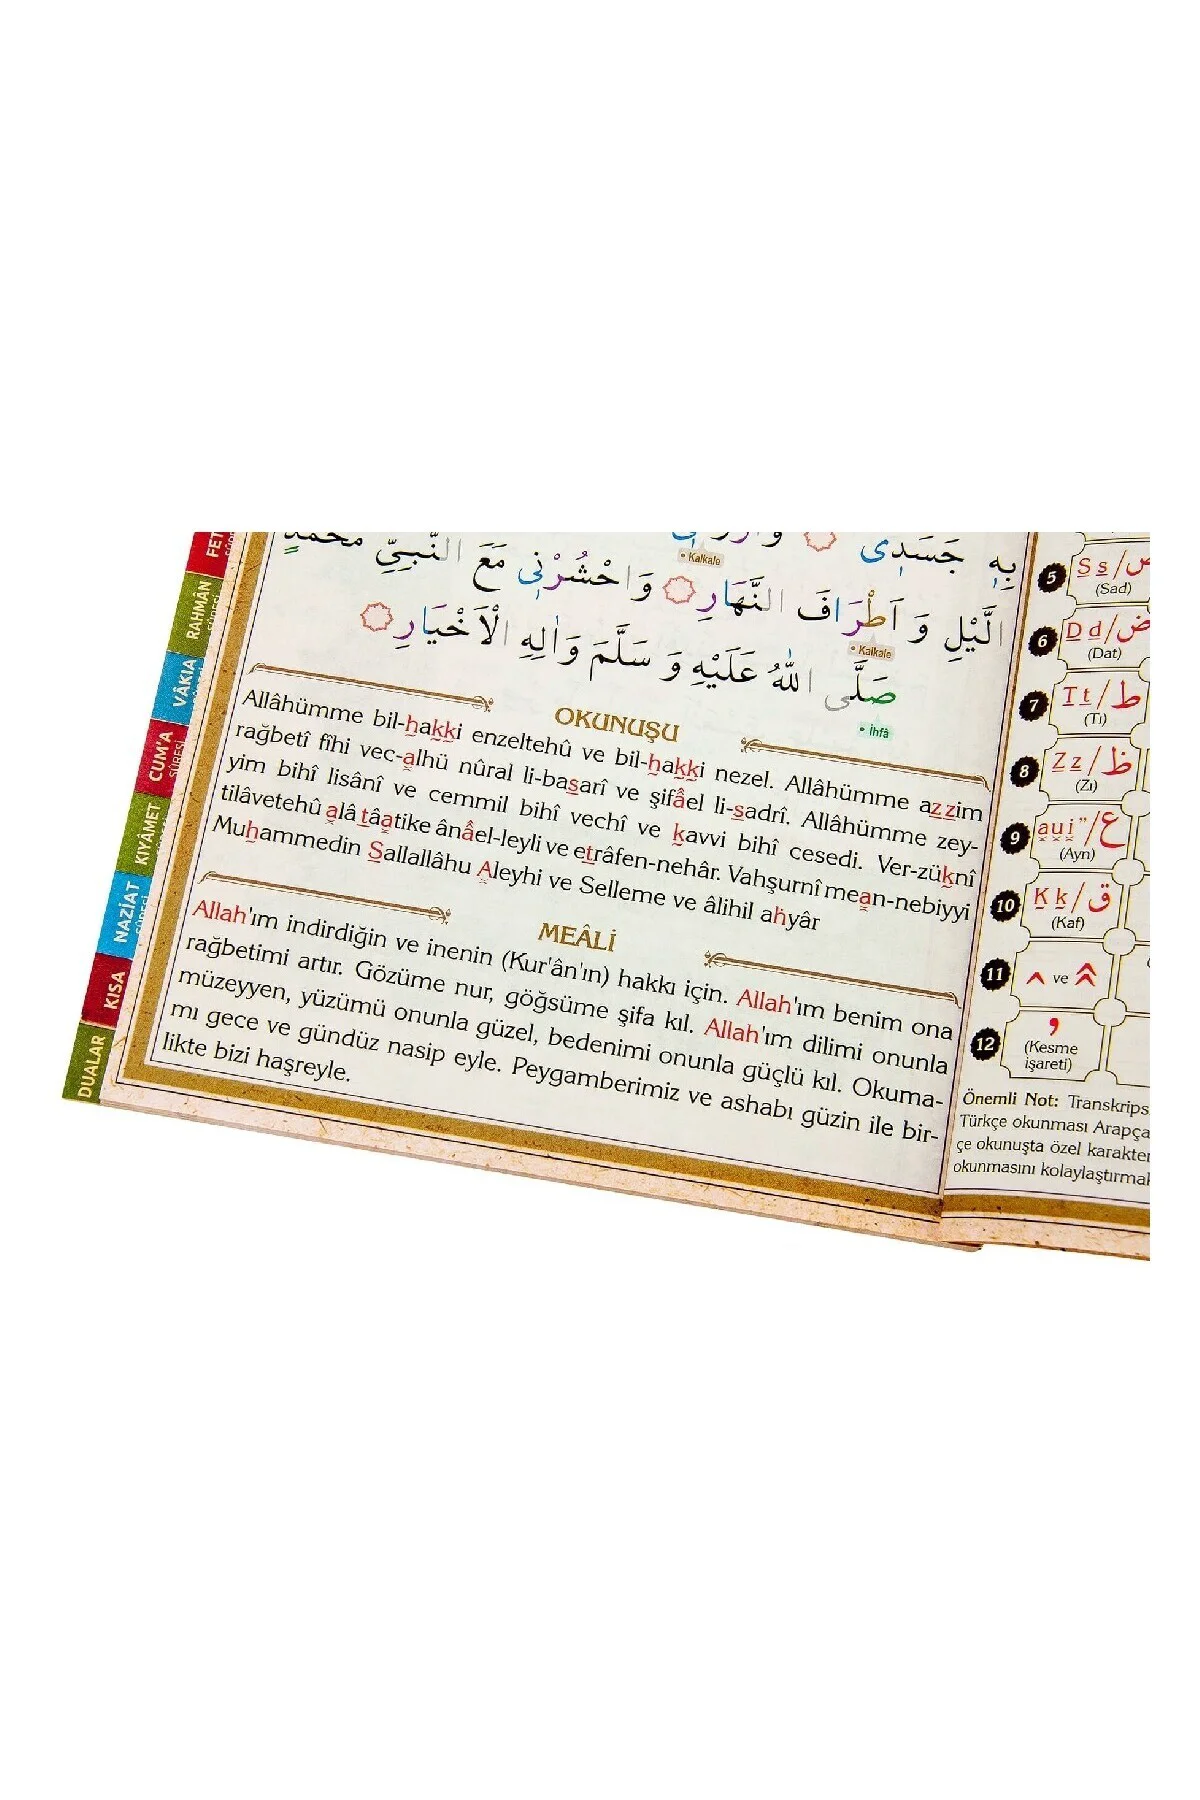 بِهٖ جَسَدٖى
الَّيْلِ وَ اَطْرَافَ النَّهَارِ وَاحْشُرْنٖى مَعَ النَّبِىِّ مُحَمَّدٍ
صَلَّى اللّٰهُ عَلَيْهِ وَ سَلَّمَ وَاٰلِهِ الْاَخْيَارِ
• Kalkale
• Kalkale
• İhfâ
OKUNUŞU
Allâhümme bil-hakki enzeltehû ve bil-hakki nezel. Allâhümme azzim
rağbetî fîhi vec-alhü nûral li-basarî ve şifâel li-sadrî. Allâhümme zey-
yim bihî lisânî ve cemmil bihî vechî ve kavvi bihî cesedi. Ver-züknî
tilâvetehû alâ tâatike ânâel-leyli ve etrâfen-nehâr. Vahşurnî mean-nebiyyi
Muhammedin Sallallâhu Aleyhi ve Selleme ve âlihil ahyâr
MEÂLİ
Allah'ım indirdiğin ve inenin (Kur'ân'ın) hakkı için. Allah'ım benim ona
rağbetimi artır. Gözüme nur, göğsüme şifa kıl. Allah'ım dilimi onunla
müzeyyen, yüzümü onunla güzel, bedenimi onunla güçlü kıl. Okuma-
mı gece ve gündüz nasip eyle. Peygamberimiz ve ashabı güzin ile bir-
likte bizi haşreyle.
RAHMÂN
VÂKIA
CUM'A
SÛRESİ
KIYÂMET
NAZİAT
KISA
DUALAR
5 S s / ص
(Sad)
6 D d / ض
(Dat)
7 T t / ط
(Tı)
8 Z z / ظ
(Zı)
9 a u i ” / ع
(Ayn)
10 K k / ق
(Kaf)
11 ve
12 ,
(Kesme
işareti)
Önemli Not:
Türkçe okunması
çe okunuşta özel
okunmasını